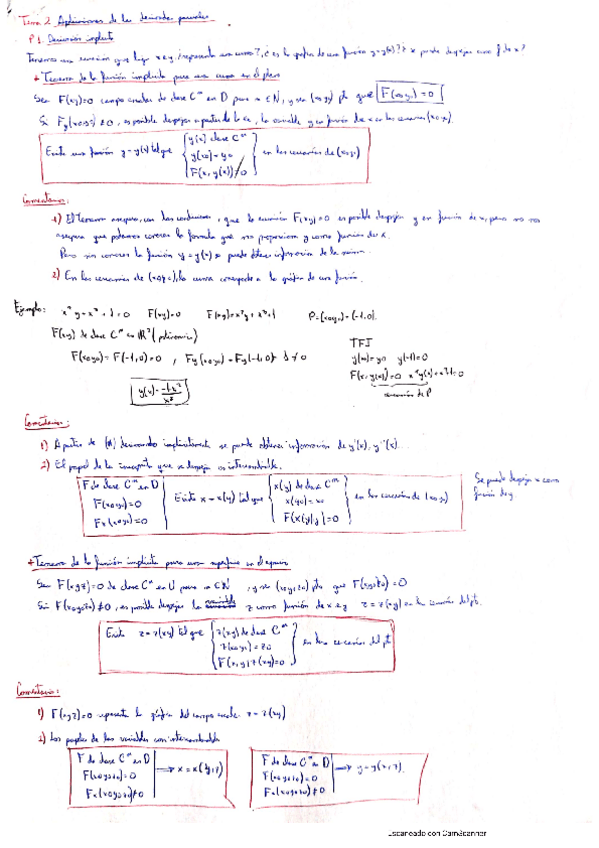 Tema 2. Aplicaciones de las derivadas parciales
P1. Derivación implícita
Tenemos una ecuación que liga x e y, ¿representa una curva?, ¿es la gráfica de una función y=y(x)? ¿x puede despejar como f de x?
+ Teorema de la función implícita para una curva en el plano
Sea F(x,y)=0 campo escalar de clase C^m en D para m ∈ N, y sea (x0,y0) pto que F(x0,y0)=0
Si Fy(x0,y0)≠0, es posible despejar a partir de la ec, la variable y en función de x en las cercanías (x0,y0).
Existe una función y=y(x) tal que { y(x) clase C^m
y(x0)=y0
F(x,y(x))=0 } en las cercanías de (x0,y0)
Comentarios:
1) El teorema asegura, con las condiciones, que la ecuación F(x,y)=0 es posible despejar y en función de x, pero no nos
asegura que podamos conocer la fórmula que nos proporciona y como función de x.
Pero sin conocer la función y=y(x) se puede obtener información de la misma.
2) En las cercanías de (x0,y0), la curva corresponde a la gráfica de una función.
Ejemplo: F(x,y)=0 P=(x0,y0)=(-1,0).
F(x,y) de clase C^∞ en R² (polinomio)
F(x0,y0)=F(-1,0)=0, Fy(x0,y0)=Fy(-1,0)= 1≠0
TFI
y(x0)=y0 y(-1)=0
cercanías de P
Comentarios:
1) A partir de (*) derivando implícitamente se puede obtener información de y'(x), y''(x)...
2) El papel de la incógnita que se despeja es intercambiable.
F de clase C^m en D
F(x0,y0)=0
Fx(x0,y0)=0
Existe x=x(y) tal que { x(y) de clase C^m
x(y0)=x0
F(x(y),y)=0 } en las cercanías de (x0,y0)
Se puede despejar x como
función de y.
+ Teorema de la función implícita para una superficie en el espacio
Sea F(x,y,z)=0 de clase C^m en U para m ∈ N, y sea (x0,y0,z0) pto que F(x0,y0,z0)=0
Si F(x0,y0,z0)≠0, es posible despejar la z como función de x e y z=z(x,y) en las cercanías del pto.
Existe z=z(x,y) tal que { z(x,y) de clase C^m
z(x0,y0)=z0
F(x,y,z(x,y))=0 } en las cercanías del pto
Comentarios:
1) F(x,y,z)=0 representa la gráfica del campo escalar z=z(x,y)
2) Los papeles de las variables son intercambiables
F de clase C^m en D
F(x0,y0,z0)=0
Fx(x0,y0,z0)≠0
→ x=x(y,z)
F de clase C^m en D
F(x0,y0,z0)=0
Fx(x0,y0,z0)≠0
→ y=y(x,z).
Escaneado con CamScanner